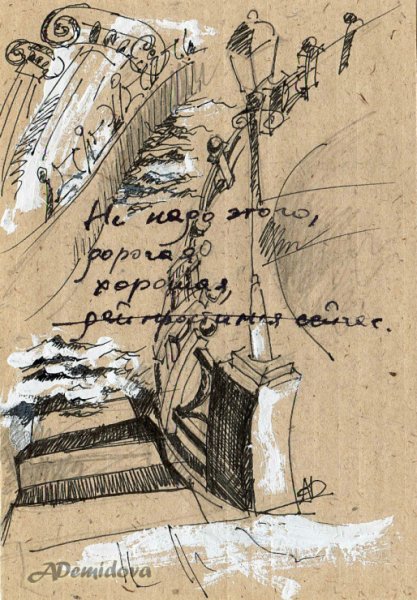 Не надо этого,
дорогая
хорошая,
дай простимся сейчас.
AD
ADemidova